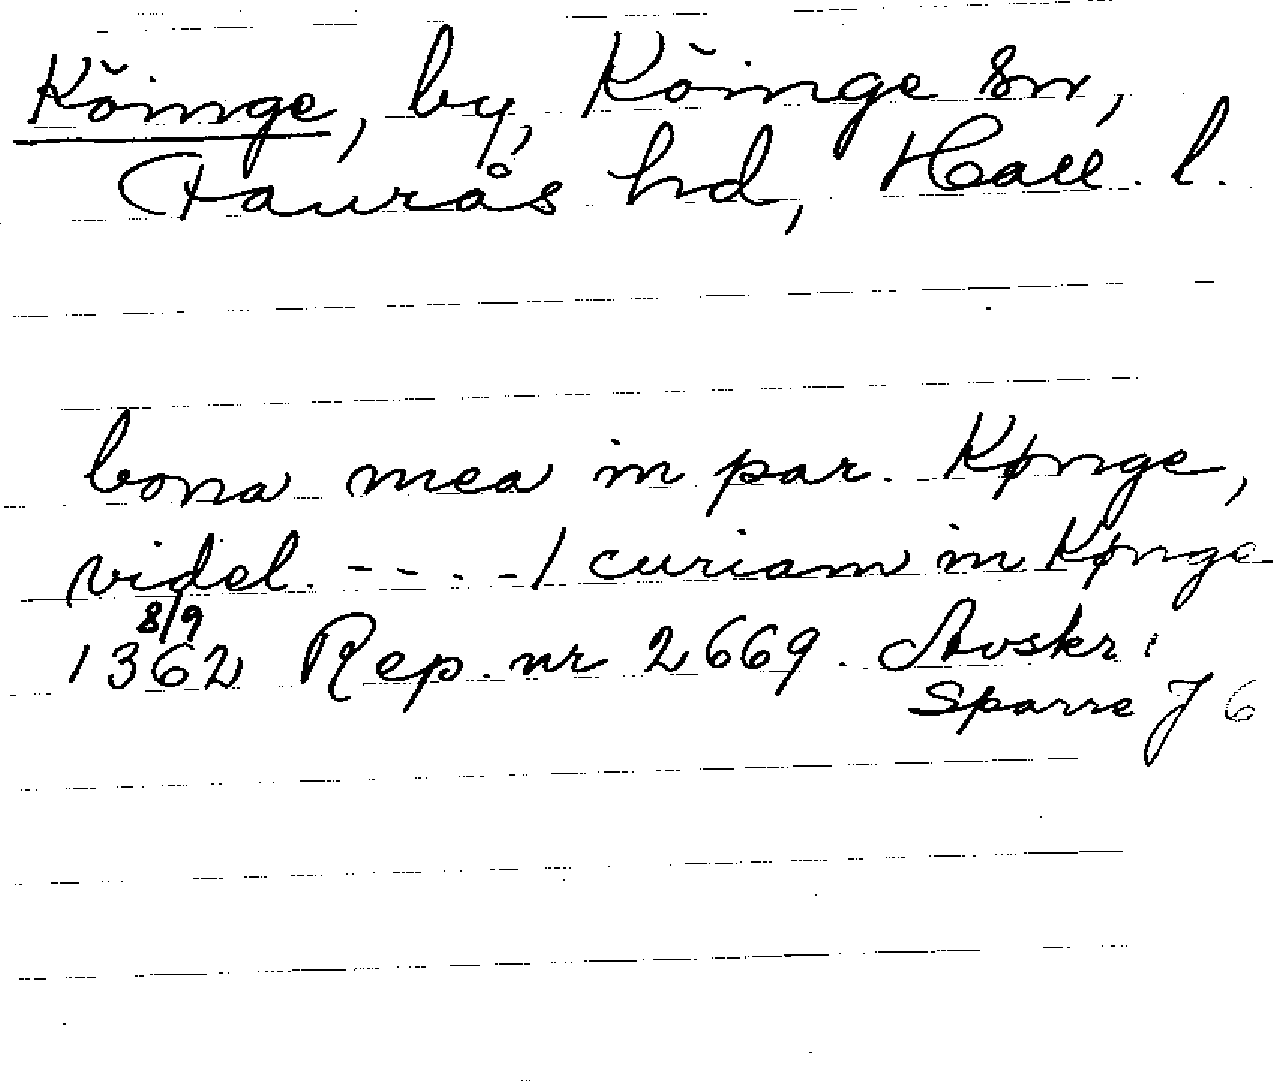 Köinge, by, Köinge sn,
Faurås hd, Hall. l.
bona mea in par. Kønge,
videl. - - . - 1 curiam in Kønge
8/9
1362 Rep. nr 2669. Avskr i
Sparre J 6